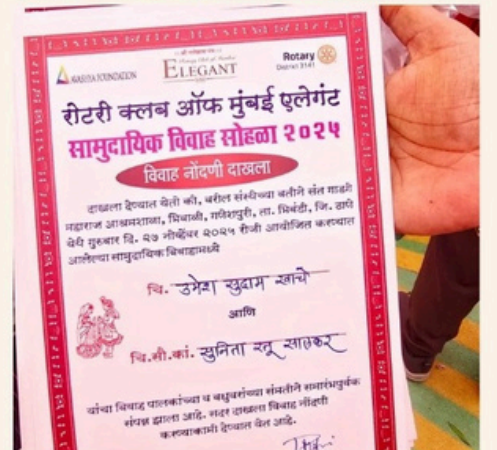 AKSHYA FOUNDATION
ELEGANT
Rotary
District 3141
रोटरी क्लब ऑफ मुंबई एलेगंट
सामुदायिक विवाह सोहळा २०२५
विवाह नोंदणी दाखला
दाखला देण्यात येतो की, वरील संस्थेच्या वतीने संत गाडगे
महाराज आश्रमशाळा, भिवाळी, गणेशपुरी, ता. भिवंडी, जि. ठाणे
येथे गुरुवार दि. २७ नोव्हेंबर २०२५ रोजी आयोजित करण्यात
आलेल्या सामुदायिक विवाहामध्ये
चि. उमेश सुदाम खाचे
आणि
चि.सौ.कां. सुनिता रतू सालकर
यांचा विवाह पालकांच्या व वधुवरांच्या संमतीने समारंभपूर्वक
संपन्न झाला आहे. सदर दाखला विवाह नोंदणी
करण्याकामी देण्यात येत आहे.